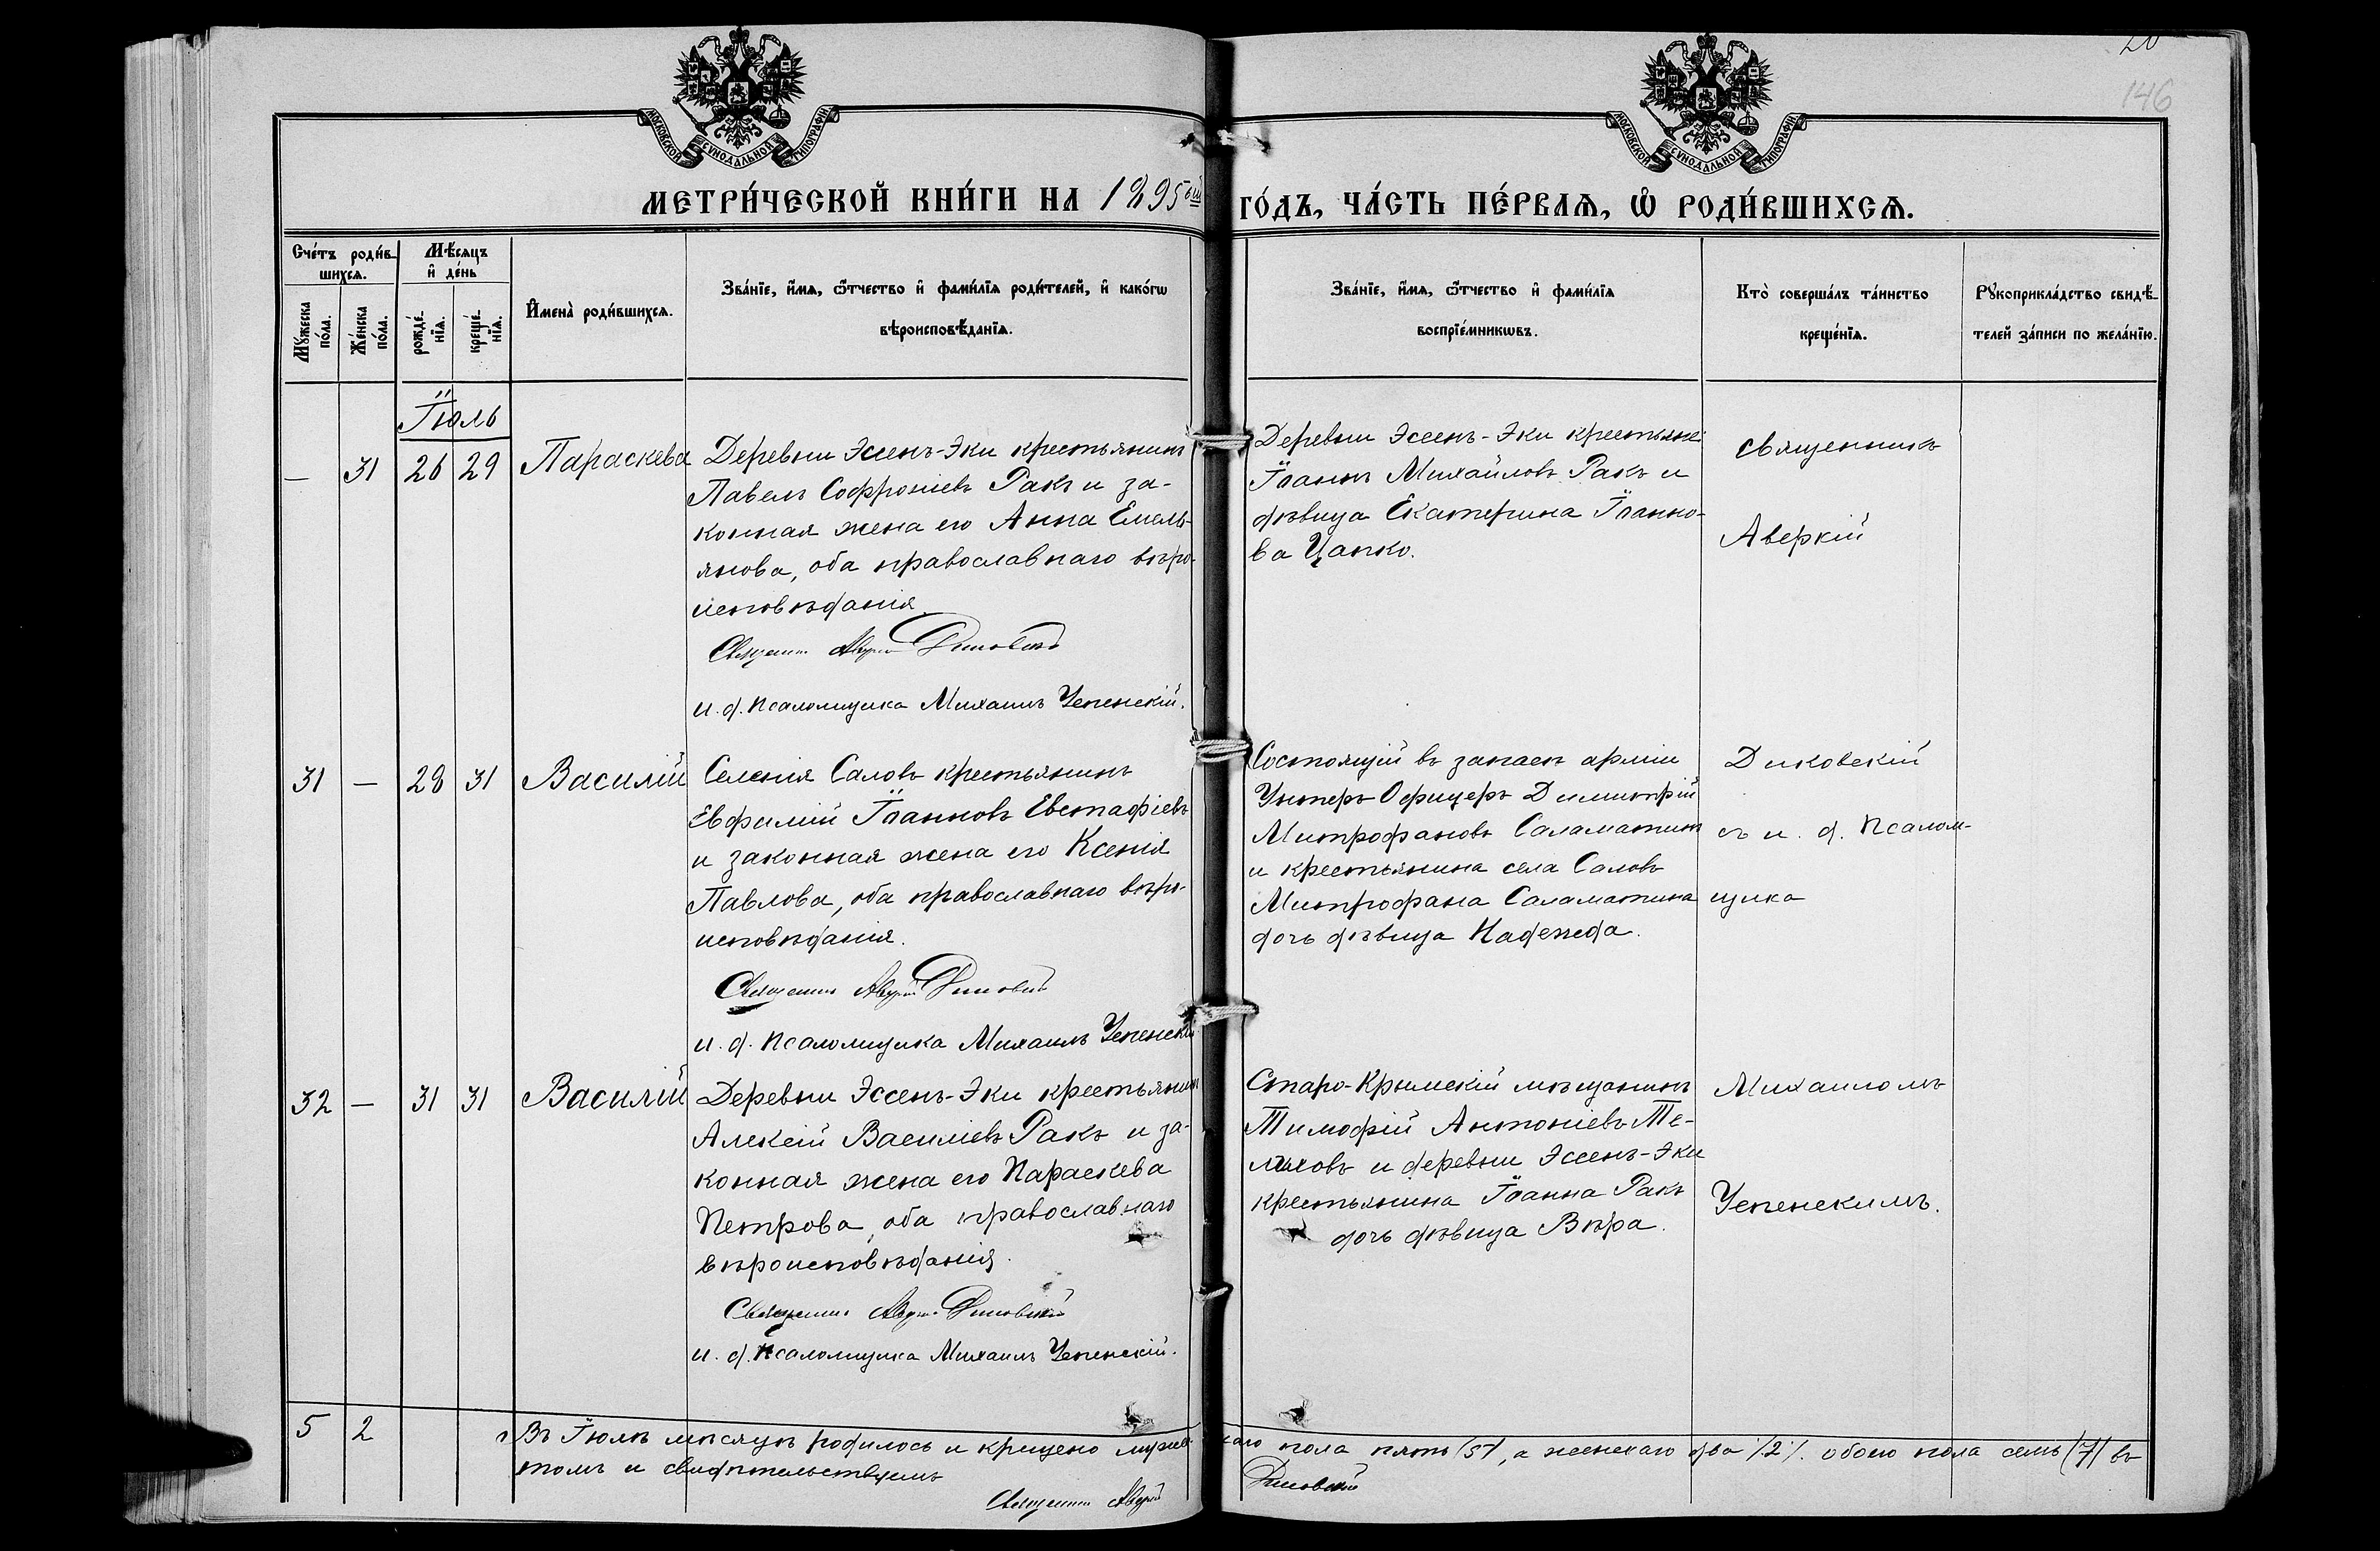 20
146
МОСКОВСКОЙ СѴНОДАЛЬНОЙ ТИПОГРАФІИ
МОСКОВСКОЙ СѴНОДАЛЬНОЙ ТИПОГРАФІИ
МЕТРИ́ЧЕСКОЙ КНИ́ГИ НА 1895ый ГО́ДЪ, ЧА́СТЬ ПЕ́РВАѦ, Ѡ҆ РОДИ́ВШИХСѦ.
Сче́тъ роди́вшихсѧ.
Мꙋ́жеска по́ла.
Же́нска по́ла.
Мѣ́сѧцъ и҆ де́нь
рожде́нїѧ.
креще́нїѧ.
И҆мена̀ роди́вшихсѧ.
Зва́нїе, и҆́мѧ, ѻ҆́тчество и҆ фами́лїѧ роди́телей, и҆ како́гѡ
вѣроисповѣ́данїѧ.
Зва́нїе, и҆́мѧ, ѻ҆́тчество и҆ фами́лїѧ
воспрїе́мникѡвъ.
Кто̀ соверша́лъ та́инство
креще́нїѧ.
Рꙋкоприкла́дство свидѣ́-
телей за́писи по жела́нїю.
Іюль
— 31 26 29 Параскева
Деревни Эссенъ-Эки крестьянинъ
Павелъ Софроніевъ Ракъ и за-
конная жена его Анна Емель-
янова, оба православнаго вѣро-
исповѣданія.
Священникъ Аверкій Диковскій
и. д. Псаломщика Михаилъ Успенскій.
Деревни Эссенъ-Эки крестьяне:
Іоаннъ Михайловъ Ракъ и
дѣвица Екатерина Іоанно-
ва Цапко.
Священникъ
Аверкій
31 — 28 31 Василій
Селенія Саловъ крестьянинъ
Евфимій Іоанновъ Евстафіевъ
и законная жена его Ксенія
Павлова, оба православнаго вѣро-
исповѣданія.
Священникъ Аверкій Диковскій
и. д. Псаломщика Михаилъ Успенскій
Состоящій въ запасѣ арміи
Унтеръ-Офицеръ Димитрій
Митрофановъ Саламатинъ
и крестьянина села Саловъ
Митрофана Саламатина
дочь дѣвица Надежда.
Диковскій
съ и. д. Псалом-
щика
32 — 31 31 Василій
Деревни Эссенъ-Эки крестьянинъ
Алексій Василіевъ Ракъ и за-
конная жена его Параскева
Петрова, оба православнаго
вѣроисповѣданія.
Священникъ Аверкій Диковскій
и. д. Псаломщика Михаилъ Успенскій.
Старо-Крымскій мѣщанинъ
Тимофій Антоніевъ Те-
лѣховъ и деревни Эссенъ-Эки
крестьянина Іоанна Ракъ
дочь дѣвица Вѣра.
Михаиломъ
Успенскимъ.
5 2 Въ Іюлѣ мѣсяцѣ родилось и крещено мужескаго пола пять /5/, а женскаго два /2/. обоего пола семь /7/ въ
томъ и свидѣтельствуемъ
Священникъ Аверкій Диковскій